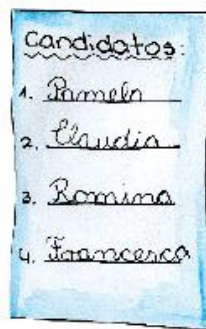 Candidatos:
1. Pamela
2. Claudia
3. Romina
4. Francesca